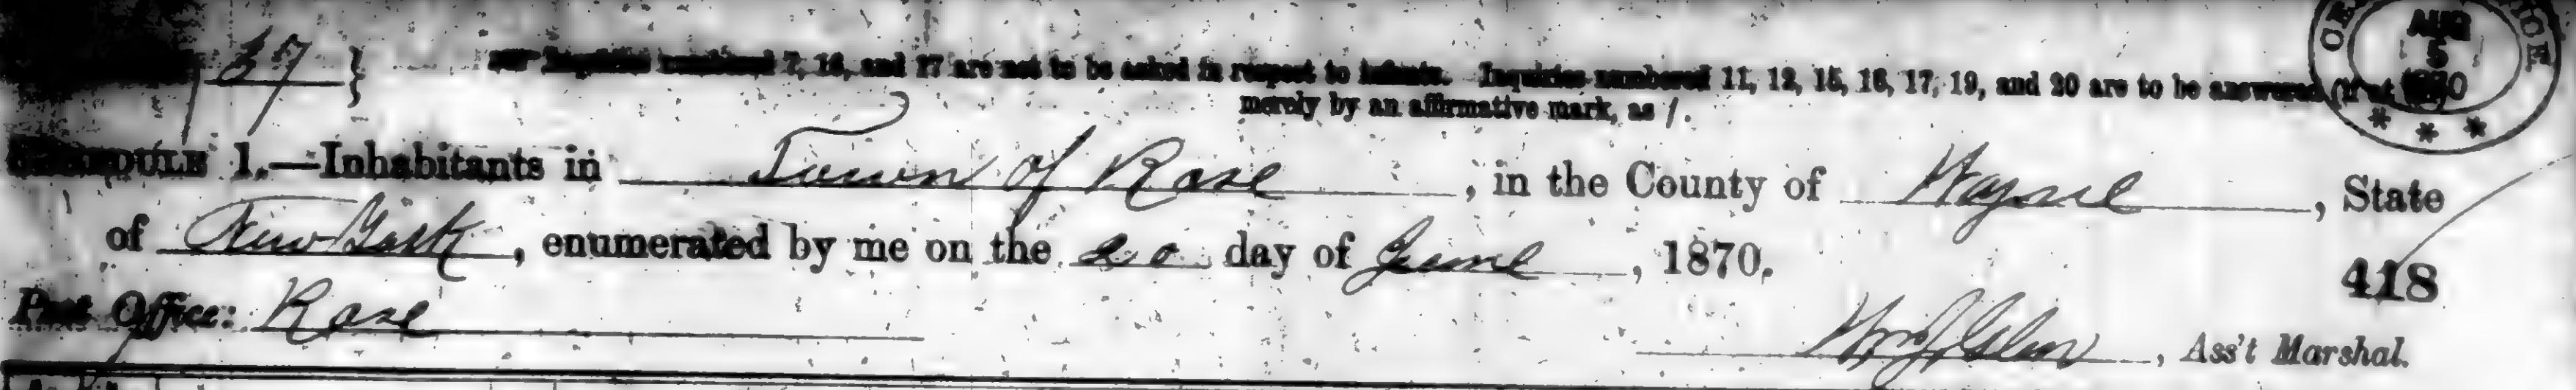 37 }
Inquiries numbered 7, 16, and 17 are not to be asked in respect to infants. Inquiries numbered 11, 12, 15, 16, 17, 19, and 20 are to be answered (if at all)
merely by an affirmative mark, as /.
AUG
5
1870
SCHEDULE 1.—Inhabitants in Town of Rose, in the County of Wayne, State
of New York, enumerated by me on the 20 day of June, 1870.
418
Post Office: Rose
Ass't Marshal.